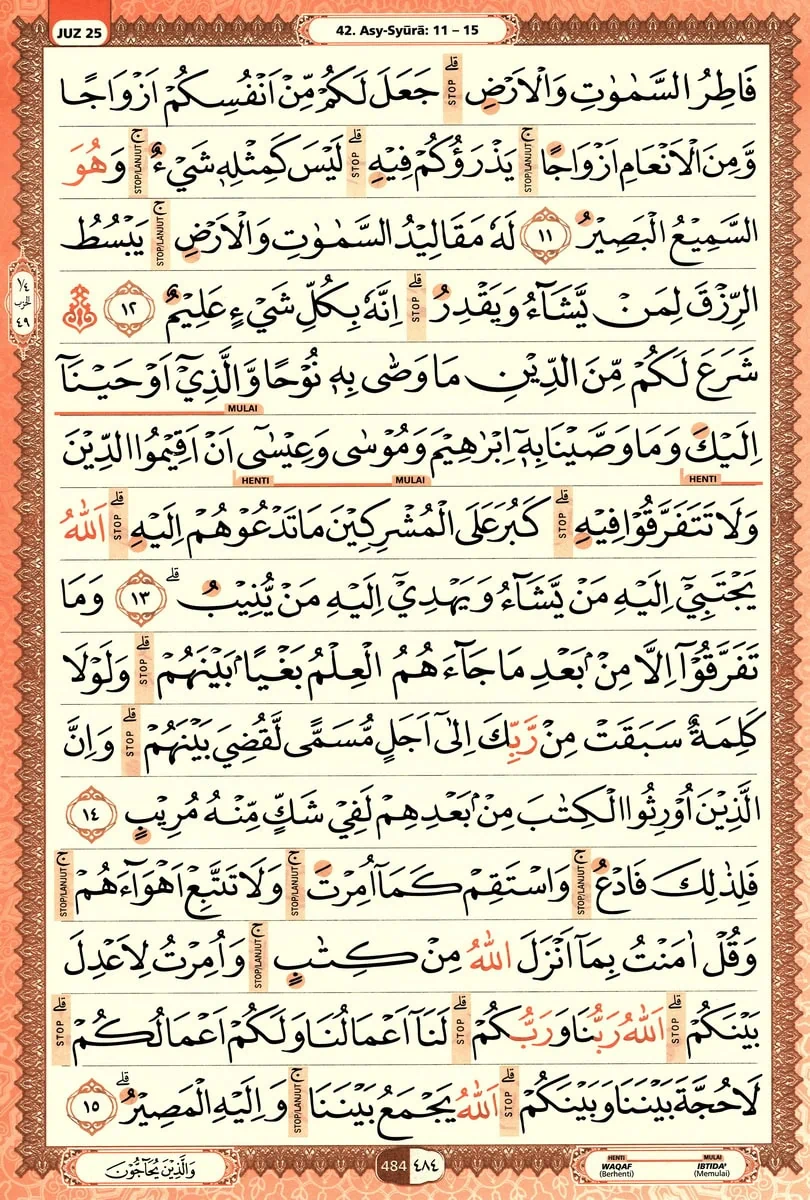 JUZ 25
42. Asy-Syūrā: 11 – 15
فَاطِرُ السَّمٰوٰتِ وَالْاَرْضِ ۗ قلى STOP جَعَلَ لَكُمْ مِّنْ اَنْفُسِكُمْ اَزْوَاجًا
وَّمِنَ الْاَنْعَامِ اَزْوَاجًا ج STOP/LANJUT يَذْرَؤُكُمْ فِيْهِ قلى STOP لَيْسَ كَمِثْلِهٖ شَيْءٌ ج STOP/LANJUT وَهُوَ
السَّمِيْعُ الْبَصِيْرُ ١١ لَهٗ مَقَالِيْدُ السَّمٰوٰتِ وَالْاَرْضِ ج STOP/LANJUT يَبْسُطُ
الرِّزْقَ لِمَنْ يَّشَاۤءُ وَيَقْدِرُ قلى STOP اِنَّهٗ بِكُلِّ شَيْءٍ عَلِيْمٌ ١٢
١/٤ الحزب ٤٩
شَرَعَ لَكُمْ مِّنَ الدِّيْنِ مَا وَصّٰى بِهٖ نُوْحًا وَّالَّذِيْٓ اَوْحَيْنَآ
MULAI
اِلَيْكَ وَمَا وَصَّيْنَا بِهٖٓ اِبْرٰهِيْمَ وَمُوْسٰى وَعِيْسٰٓى اَنْ اَقِيْمُوا الدِّيْنَ
HENTI MULAI HENTI
وَلَا تَتَفَرَّقُوْا فِيْهِ قلى STOP كَبُرَ عَلَى الْمُشْرِكِيْنَ مَا تَدْعُوْهُمْ اِلَيْهِ قلى STOP اَللّٰهُ
يَجْتَبِيْٓ اِلَيْهِ مَنْ يَّشَاۤءُ وَيَهْدِيْٓ اِلَيْهِ مَنْ يُّنِيْبُۗ ١٣ وَمَا
تَفَرَّقُوْٓا اِلَّا مِنْۢ بَعْدِ مَا جَاۤءَهُمُ الْعِلْمُ بَغْيًاۢ بَيْنَهُمْ قلى STOP وَلَوْلَا
كَلِمَةٌ سَبَقَتْ مِنْ رَّبِّكَ اِلٰٓى اَجَلٍ مُّسَمًّى لَّقُضِيَ بَيْنَهُمْ قلى STOP وَاِنَّ
الَّذِيْنَ اُوْرِثُوا الْكِتٰبَ مِنْۢ بَعْدِهِمْ لَفِيْ شَكٍّ مِّنْهُ مُرِيْبٍ ١٤
فَلِذٰلِكَ فَادْعُ ج STOP/LANJUT وَاسْتَقِمْ كَمَآ اُمِرْتَ ج STOP/LANJUT وَلَا تَتَّبِعْ اَهْوَاۤءَهُمْ ج STOP/LANJUT
وَقُلْ اٰمَنْتُ بِمَآ اَنْزَلَ اللّٰهُ مِنْ كِتٰبٍ ج STOP/LANJUT وَاُمِرْتُ لِاَعْدِلَ
بَيْنَكُمْ قلى STOP اَللّٰهُ رَبُّنَا وَرَبُّكُمْ قلى STOP لَنَآ اَعْمَالُنَا وَلَكُمْ اَعْمَالُكُمْ قلى STOP
لَا حُجَّةَ بَيْنَنَا وَبَيْنَكُمْ قلى STOP اَللّٰهُ يَجْمَعُ بَيْنَنَا ج STOP/LANJUT وَاِلَيْهِ الْمَصِيْرُۗ ١٥
وَالَّذِيْنَ يُحَاۤجُّوْنَ
484 ٤٨٤
HENTI WAQAF (Berhenti)
MULAI IBTIDA' (Memulai)